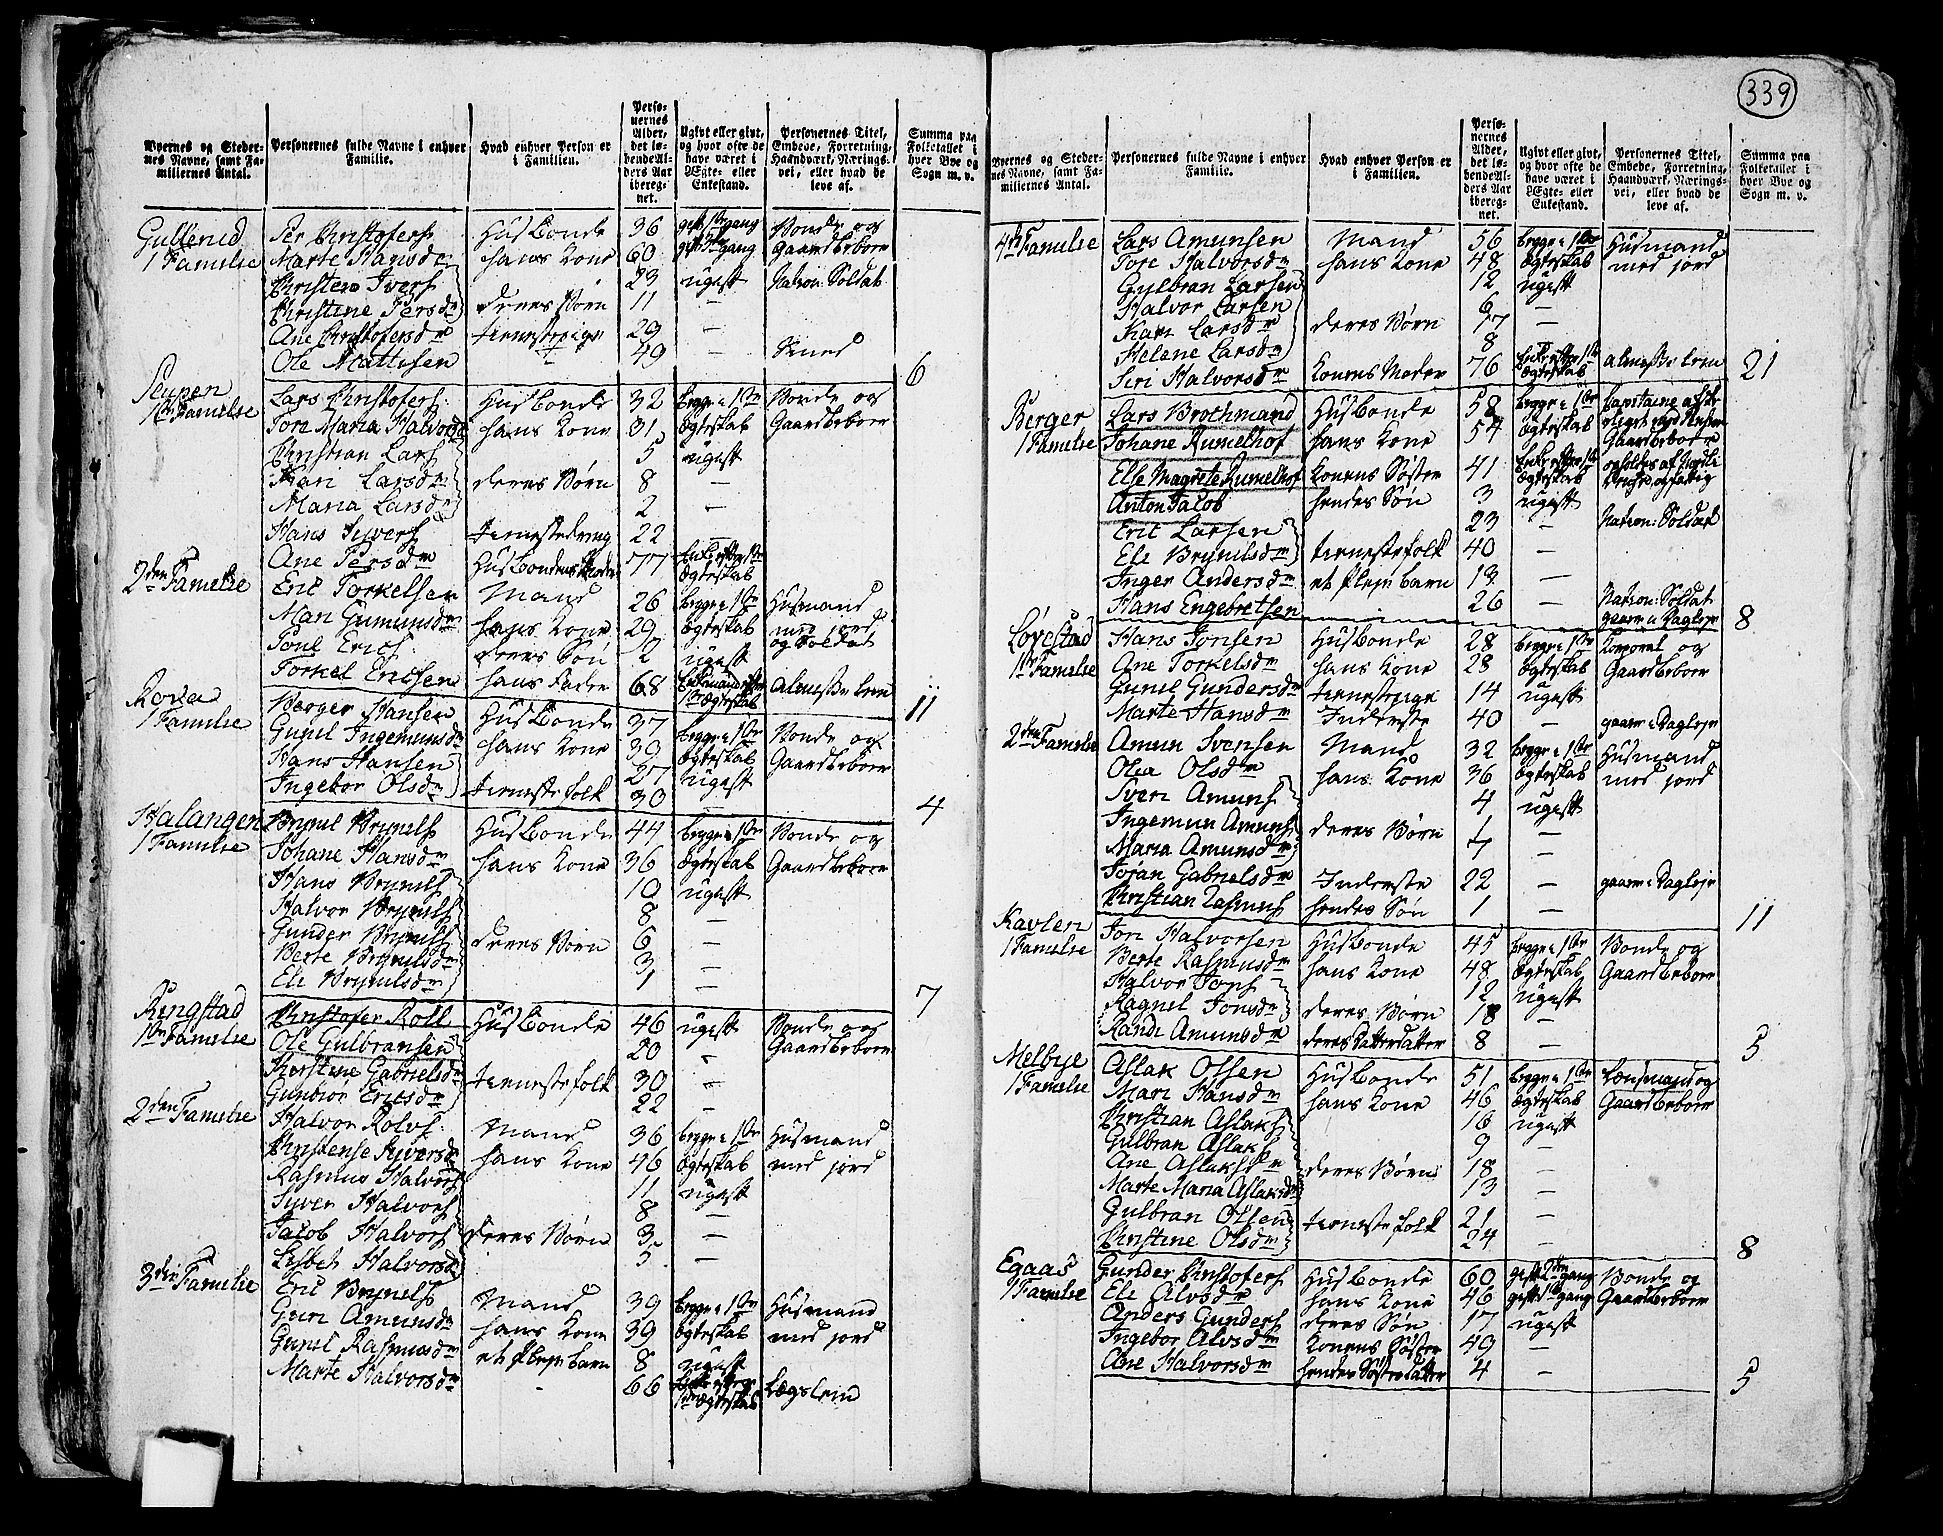 339
Byernes og Stedernes Navne, samt Familiernes Antal.
Personernes fulde Navne i enhver Familie.
Hvad enhver Person er i Familien.
Personernes Alder, det løbende Alders Aar iberegnet.
Ugivt eller givt, og hvor ofte de have været i Ægte- eller Enkestand.
Personernes Titel, Embede, Forretning, Haandværk, Næringsvei, eller hvad de leve af.
Summa paa Folketallet i hver Bye og Sogn m. v.
Gullenid Per Christofers Husbonde 36 gift 1te gang Bonde og
1 Familie Marte Hansdr hans Kone 60 gang Gaardbeboer
Christen Ivers 23 ugift Nation: Soldat
Christine Persdr deres Børn 11
Ane Christofersdr tienestepige 29 —
Ole Mattisen 49 — Smed 6
Lars Christofers: Husbonde 32 begge i 1te Bonde og
1te Familie Tore Maria Halvorsd hans Kone 31 Ægteskab Gaardbeboer
Christian Lars 5 ugift
Kari Larsdr deres Børn 8 —
Maria Larsdr 2 —
Hans Syvers tienestedreng 22 —
Ane Persdr Husbondens Moder 77 Ægteskab
2den Familie Eric Torkelsen Mand 26 begge i 1te Husmand
Mari Gumunsdr hans Kone 29 Ægteskab med jord og Soldat
Poul Erics: deres Søn 2 ugift
Torkel Ericsen hans Fader 68 1te Ægteskab Almisse lem 11
Rova Børger Hansen Husbonde 37 begge i 1te Bonde og
1 Familie Gunil Ingemunsdr hans Kone 39 Ægteskab Gaardbeboer
Hans Hansen 27 ugift
Ingebor Olsdr tieneste folk 30 4
Halangen Brynil Brynils Husbonde 44 begge i 1te Bonde og
1 Familie Johane Hansdr hans Kone 36 Ægteskab Gaardbeboer
Hans Brynils 10 ugift
Halvor Brynils 8 —
Gunder Brynils deres Børn 6 —
Berte Brynilsdr 3 —
Eli Brynilsdr 1 — 7
Ringstad Christofer Roll Husbonde 46 ugift Bonde og
1te Familie Ole Gulbransen 20 - Gaardbeboer
Kerstine Gabrielsdr tieneste folk 30 -
Gunbiør Ericsdr 22 -
2den Familie Halvor Rolvs: Mand 36 begge i 1te Husmand
Christense Syversd hans Kone 46 Ægteskab med jord
Rasmus Halvors 11 ugift
Syver Halvors 8 —
Jacob Halvors deres Børn 3 —
Lisbeth Halvorsd 5 —
3die Familie Eric Brynils Mand 39 begge i 1te Husmand
Guri Amunsdr hans Kone 39 Ægteskab med jord
Gunil Rasmusdr et Plejebarn 8 ugift
Marte Halvorsdr - 66 1te Ægteskab Lægslem
Byernes og Stedernes Navne, samt Familiernes Antal.
Personernes fulde Navne i enhver Familie.
Hvad enhver Person er i Familien.
Personernes Alder, det løbende Alders Aar iberegnet.
Ugivt eller givt, og hvor ofte de have været i Ægte- eller Enkestand.
Personernes Titel, Embede, Forretning, Haandværk, Næringsvei, eller hvad de leve af.
Summa paa Folketallet i hver Bye og Sogn m. v.
4de Familie Lars Amunsen Mand 56 begge i 1te Husmand
Tore Halvorsdr hans Kone 48 Ægteskab med jord
Gulbran Larsen 12 ugift
Halvor Larsen 6
Kari Larsdr deres Børn 17 —
Helene Larsdr 8
Siri Halvorsdr Konens Moder 76 Ægteskab Almisse lem 21
Berger Lars Brothmand Husbonde 58 begge i 1te
1 Familie Johane Rumelhof hans Kone 54 Ægteskab Gaardbeboer
Else Magrete Rumelhof Konens Søster 41 Ægteskab
Anton Jacob hendes Søn 3 ugift
Eric Larsen 23 — Nation: Soldat
Eli Brynilsdr tienestefolk 40 —
Inger Andersdr et Plejebarn 13 —
Hans Engebretsen - 26 — Nation: Soldat gaaer i Dagleje 8
Løvestad Hans Jonsen Husbonde 28 begge i 1te Korporal og
1te Familie Ane Torkelsdr hans Kone 28 Ægteskab Gaardbeboer
Gunil Gundersdr tienestepige 14 ugift
Marte Hansdr Inderste 40 — gaaer i Dagleje
2den Familie Amun Svensen Mand 32 begge i 1te Husmand
Olea Olsdr hans Kone 36 Ægteskab med jord
Sven Amuns 4 ugift
Ingemun Amuns deres Børn 1 —
Maria Amunsdr 7 —
Jøran Gabrielsdr Inderste 22 — gaaer i Dagleje
Christian Rasmus hendes Søn 1 — 11
Kavlen Jon Halvorsen Husbonde 45 begge i 1te Bonde og
1 Familie Berte Rasmusdr hans Kone 48 Ægteskab Gaardbeboer
Halvor Jons 12 ugift
Ragnil Jonsdr deres Børn 18 —
Randi Amunsdr deres Datterdatter 8 — 5
Melbye Aslak Olsen Husbonde 51 begge i 1te Lænsmand og
1 Familie Mari Hansdr hans Kone 46 Ægteskab Gaardbeboer
Christian Aslaks 16 ugift
Gulbran Aslaks 9 —
Ane Aslaksdr deres Børn 18 —
Marte Maria Aslaksdr 13 —
Gulbran Olsen tieneste folk 21 —
Christine Olsdr 24 — 8
Egaas Gunder Christofers Husbonde 60 gift 2den gang Bonde og
1 Familie Eli Alvsdr hans Kone 46 gift 1te gang Gaardbeboer
Anders Gunders deres Søn 17 ugift
Ingebor Alvsdr Konens Søster 49 —
Ane Halvorsdr hendes Søsterdatter 4 — 5